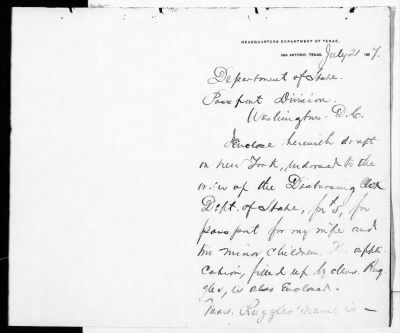 HEADQUARTERS DEPARTMENT OF TEXAS,
SAN ANTONIO, TEXAS, July 21 7.
Department of State.
Passport Division.
Washington D.C.
I enclose herewith draft
on New York, indorsed to the
order of the Disbursing Clerk
Dept. of State, for $5, for
passport for my wife and
two minor children. The appli-
cation, filled up by Mrs. Rug-
gles, is also enclosed.
Mrs. Ruggles' name is —